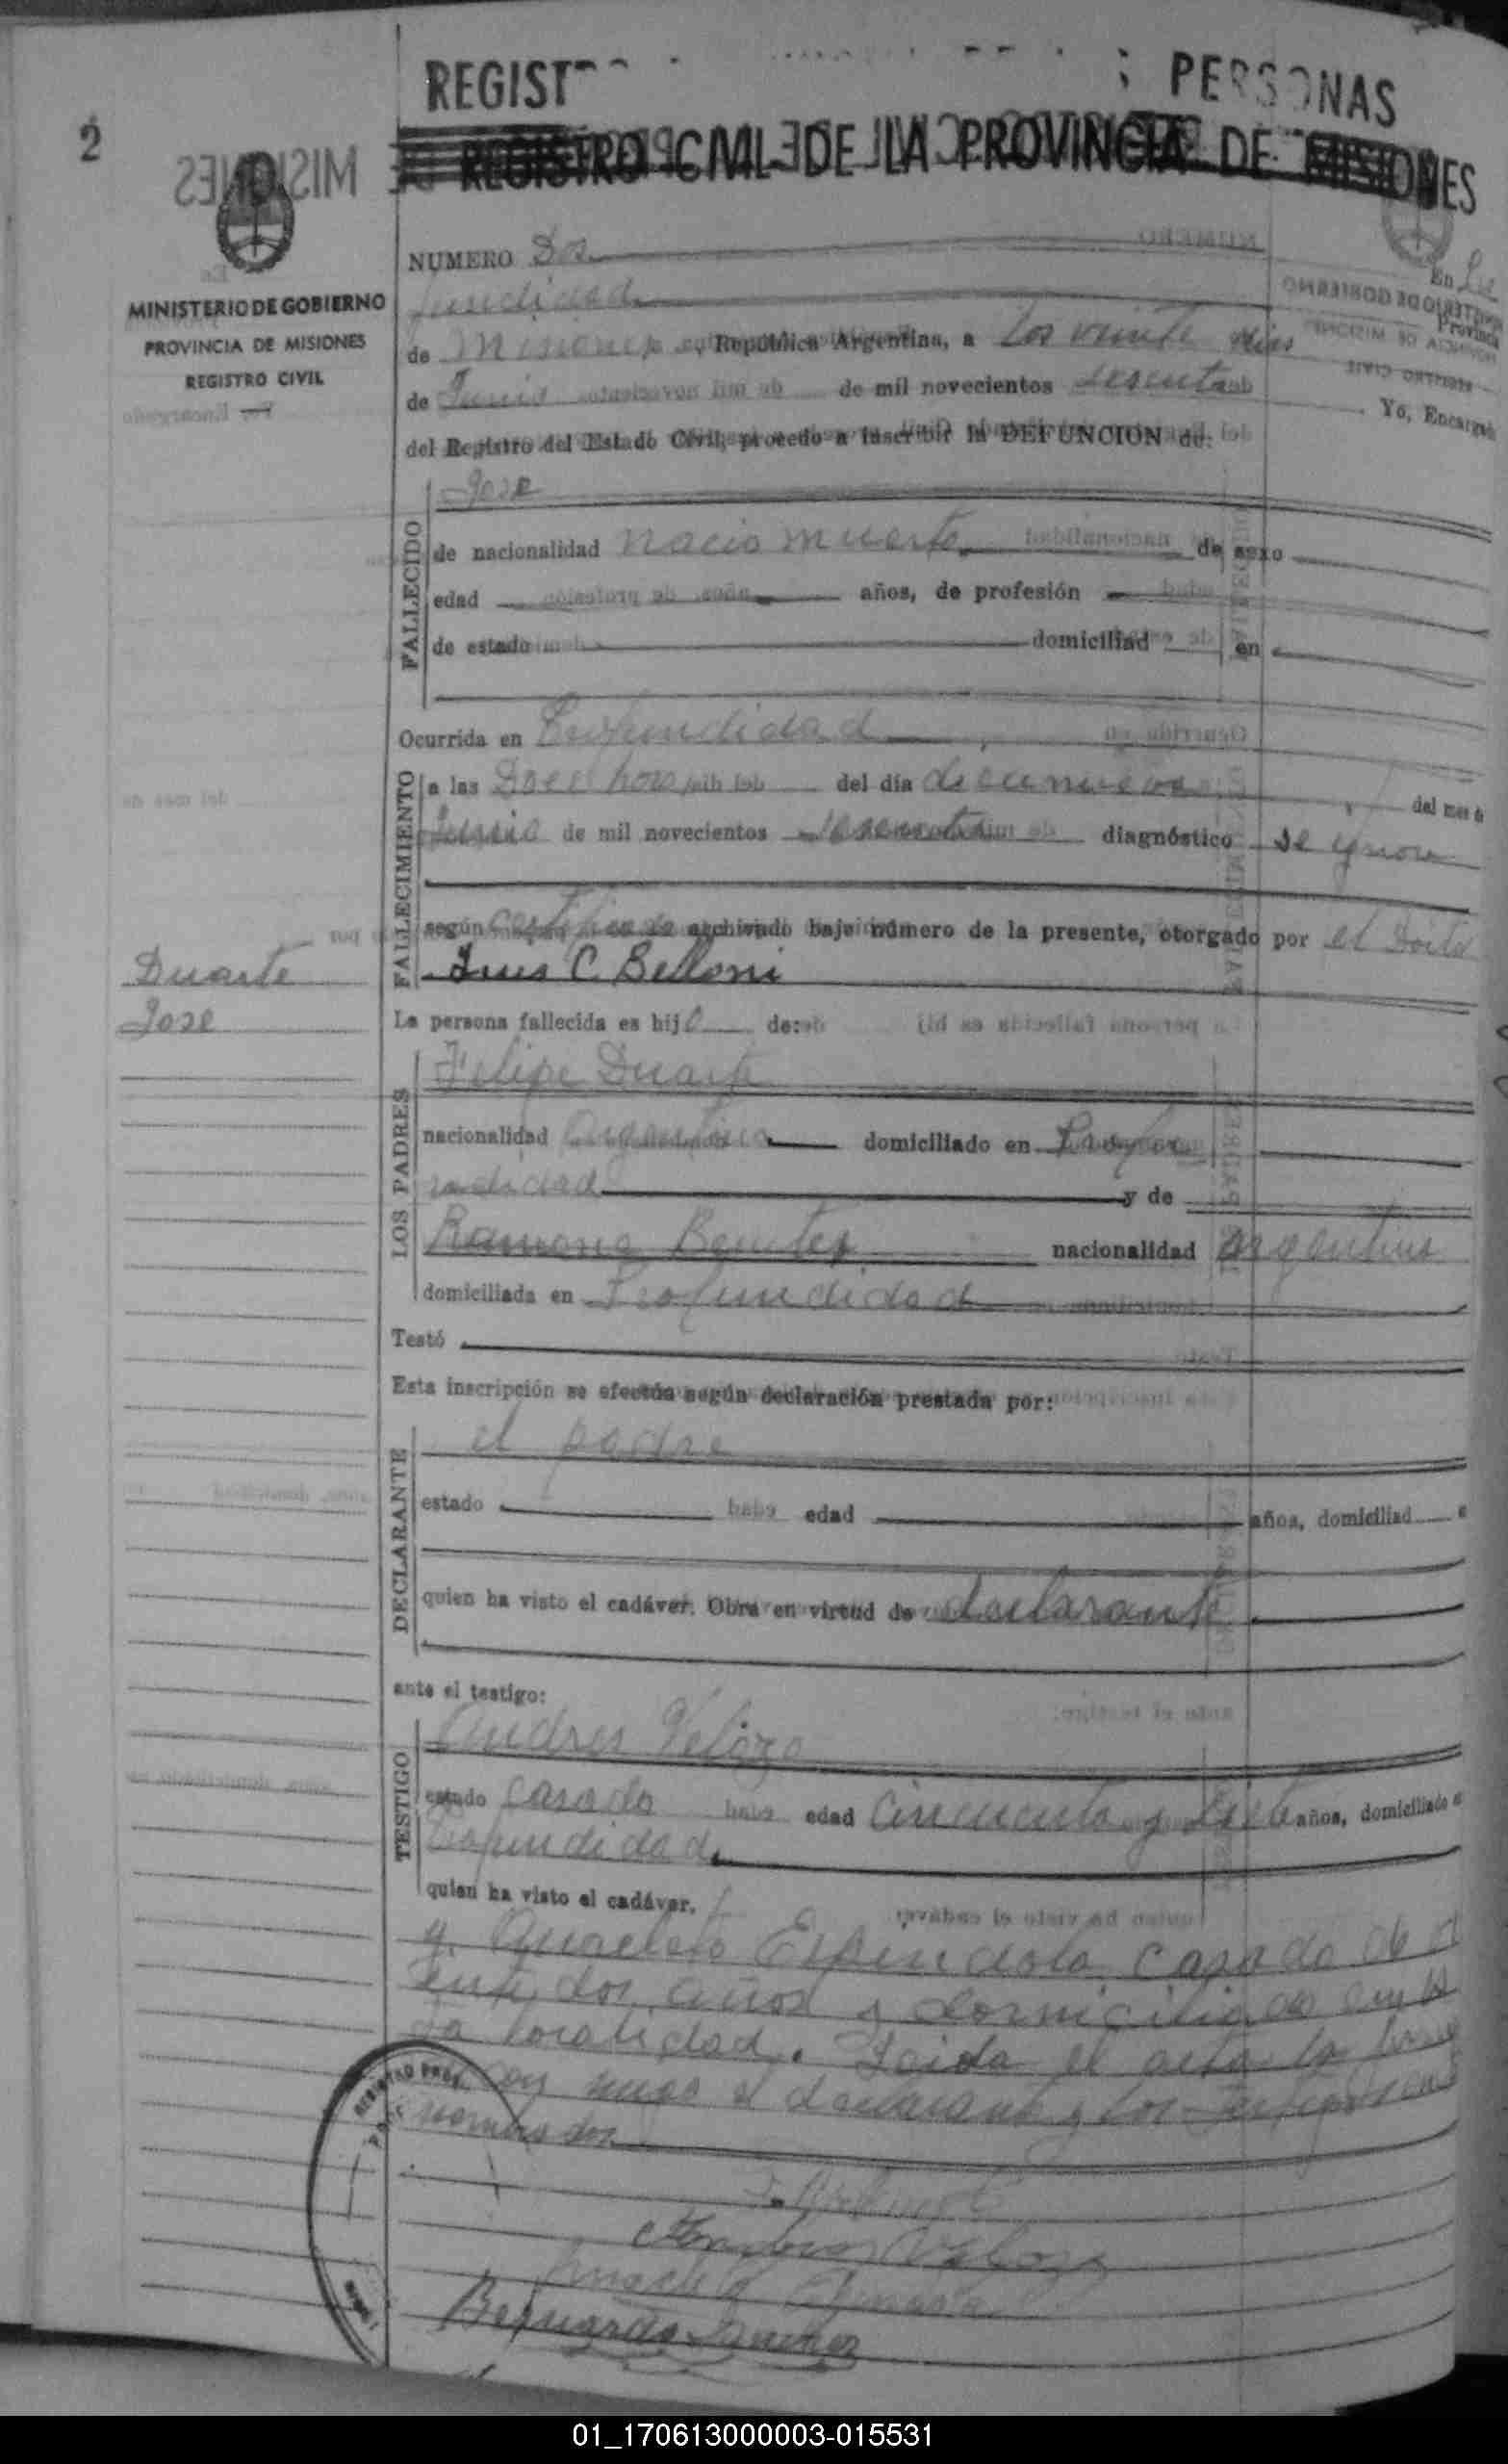 2
REGIST PERSONAS
REGISTRO CIVIL DE LA PROVINCIA DE MISIONES
MINISTERIO DE GOBIERNO
PROVINCIA DE MISIONES
REGISTRO CIVIL
NUMERO Dos
fundidad
de Misiones, República Argentina, a los veinte días
de Junio de mil novecientos sesenta
del Registro del Estado Civil, procedo a inscribir la DEFUNCION de:
FALLECIDO
Jose
de nacionalidad nacio muerto de sexo
edad años, de profesión
de estado domiciliad en
Ocurrida en Profundidad
FALLECIMIENTO
a las Doce horas del día diecinueve del mes de
Junio de mil novecientos sesenta diagnóstico se ignora
según certificado archivado bajo número de la presente, otorgado por el Doctor
Luis C. Belloni
Duarte
Jose
La persona fallecida es hijo de:
LOS PADRES
Felipe Duarte
nacionalidad Argentino domiciliado en Profun
didad y de
Ramona Benitez nacionalidad argentina
domiciliada en Profundidad
Testó
Esta inscripción se efectúa según declaración prestada por:
DECLARANTE
el padre
estado edad años, domiciliad
quien ha visto el cadáver. Obra en virtud de declarante
ante el testigo:
TESTIGO
Andres Velozo
estado casado edad Cincuenta y siete años, domiciliado
Profundidad
quien ha visto el cadáver.
y Anacleto Espindola casado de
dos años y domiciliado en
ta localidad. Leida el acta la
con migo el declarante y los testigos
nombrados
Andres Veloz
Anacleto Espindola
Bernardo
01_170613000003-015531